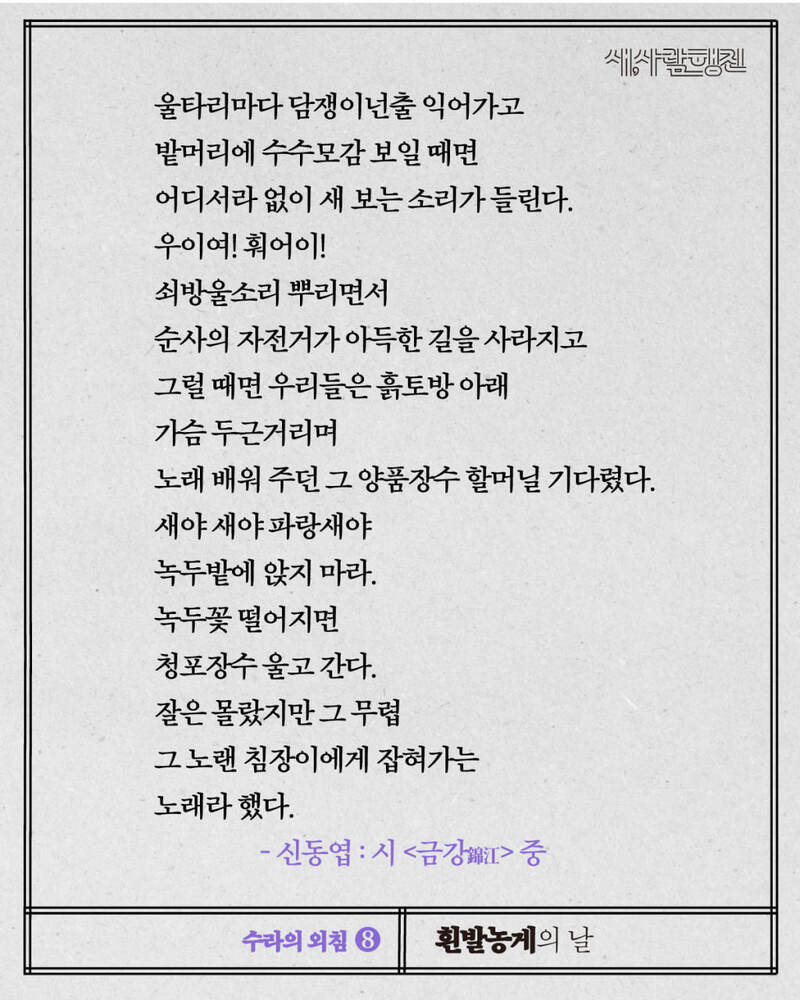 새,사람행진
울타리마다 담쟁이넌출 익어가고
밭머리에 수수모감 보일 때면
어디서라 없이 새 보는 소리가 들린다.
우이여! 훠어이!
쇠방울소리 뿌리면서
순사의 자전거가 아득한 길을 사라지고
그럴 때면 우리들은 흙토방 아래
가슴 두근거리며
노래 배워 주던 그 양품장수 할머닐 기다렸다.
새야 새야 파랑새야
녹두밭에 앉지 마라.
녹두꽃 떨어지면
청포장수 울고 간다.
잘은 몰랐지만 그 무렵
그 노랜 침장이에게 잡혀가는
노래라 했다.
- 신동엽 : 시 <금강錦江> 중
수라의 외침 8
흰발농게의 날